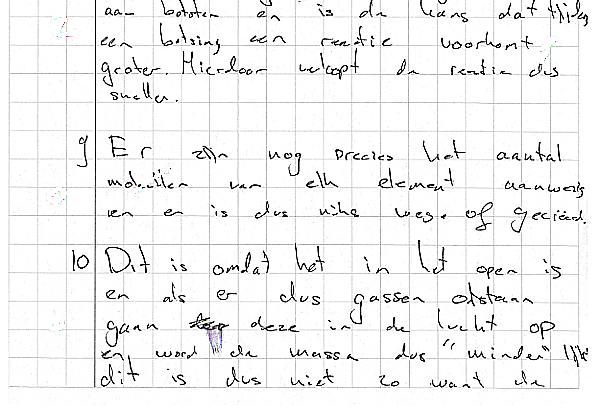 aan botsten en is de kans dat tijdens
een botsing een reactie voorkomt
groter. Hierdoor verloopt de reactie dus
sneller.
9 Er zijn nog precies het aantal
moleculen van elk element aanwezig
en er is dus niks weg. of gecreëerd.
10 Dit is omdat het in het open is
en als er dus gassen ontstaan
gaan deze in de lucht op
en word de massa dus "minder" lijkt
dit is dus niet zo want de